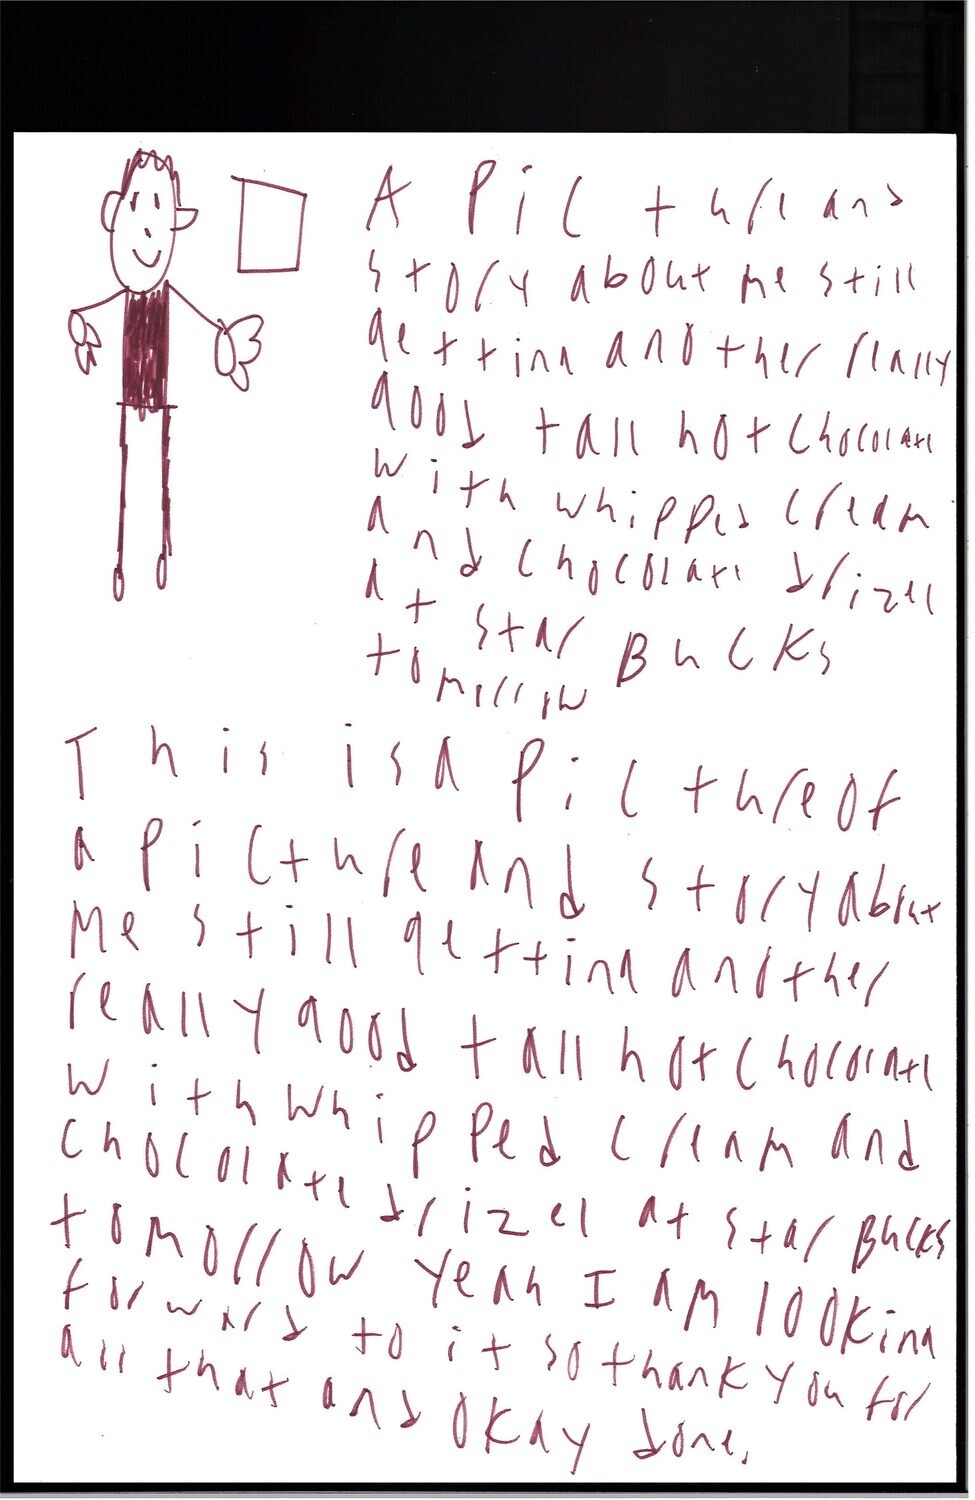 A Picture and
story about me still
getting another really
good tall hot chocolate
with whipped cream
and chocolate drizel
at star Bucks
tomorrow
This is a Picture of
a picture and story about
me still getting another
really good tall hot chocolate
with whipped cream and
chocolate drizel at star Bucks
tomorrow yeah I am looking
forward to it so thank you for
all that and okay done.